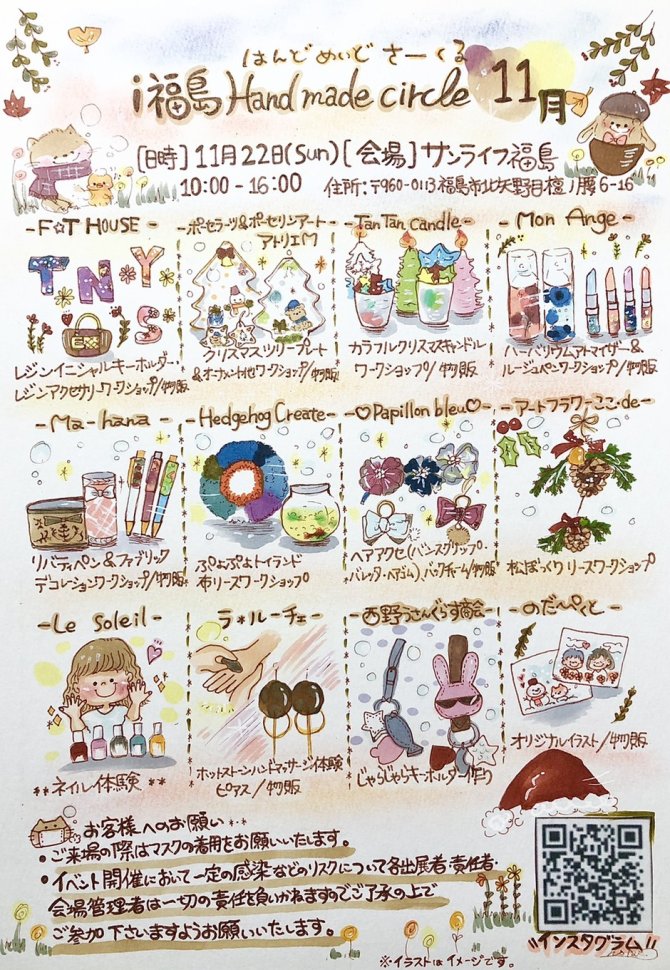 はんどめいど さーくる
i福島 Hand made circle 11月
[日時] 11月22日(Sun) [会場] サンライフ福島
10:00 - 16:00 住所:〒960-0113 福島市北矢野目檀ノ腰6-16
-F☆T HOUSE-
TNYS
レジンイニシャルキーホルダー・
レジンアクセサリーワークショップ/物販
-ポーセラーツ&ポーセリンアート
アトリエM
クリスマスツリープレート
&オーナメント他ワークショップ/物販
-Tan Tan Candle-
カラフルクリスマスキャンドル
ワークショップ/物販
-Mon Ange-
ハーバリウムアトマイザー&
ルージュペンワークショップ/物販
-Ma-hana-
リバティペン&ファブリック
デコレーションワークショップ/物販
-Hedgehog Create-
ぷよぷよトイランド
布リースワークショップ
-♡Papillon bleu♡-
ヘアアクセ(バンスクリップ・
バレッタ・ヘアゴム)、バッグチャーム/物販
-アートフラワーここ・de-
松ぼっくりリースワークショップ
-Le Soleil-
**ネイル体験**
-ラ*ルーチェ-
ホットストーンハンドマッサージ体験
ピアス/物販
-西野うさんぐらす商会-
じゃらじゃらキーホルダー作り
-のだぺくと-
オリジナルイラスト/物販
お客様へのお願い**
・ご来場の際はマスクの着用をお願いいたします。
・イベント開催において一定の感染などのリスクについて各出展者・責任者・
会場管理者は一切の責任を負いかねますのでご了承の上で
ご参加下さいますようお願いいたします。
インスタグラム
※イラストはイメージです。